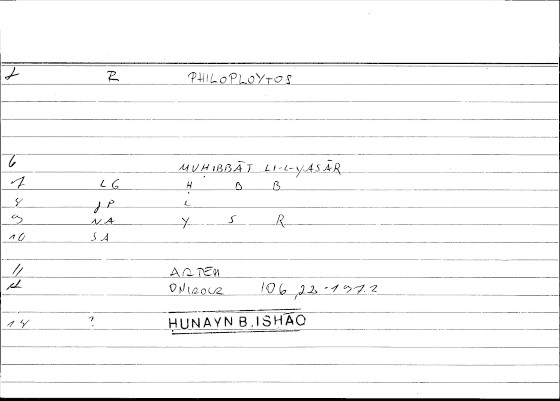 1 R PHILOPLOYTOS
6 MUḤIBBĀT LI-L-YASĀR
7 LG Ḥ B B
8 JP L
9 NA Y S R
10 SA
11 ARTEM
12 ONIROCR
14 ? HUNAYN B. ISHĀQ